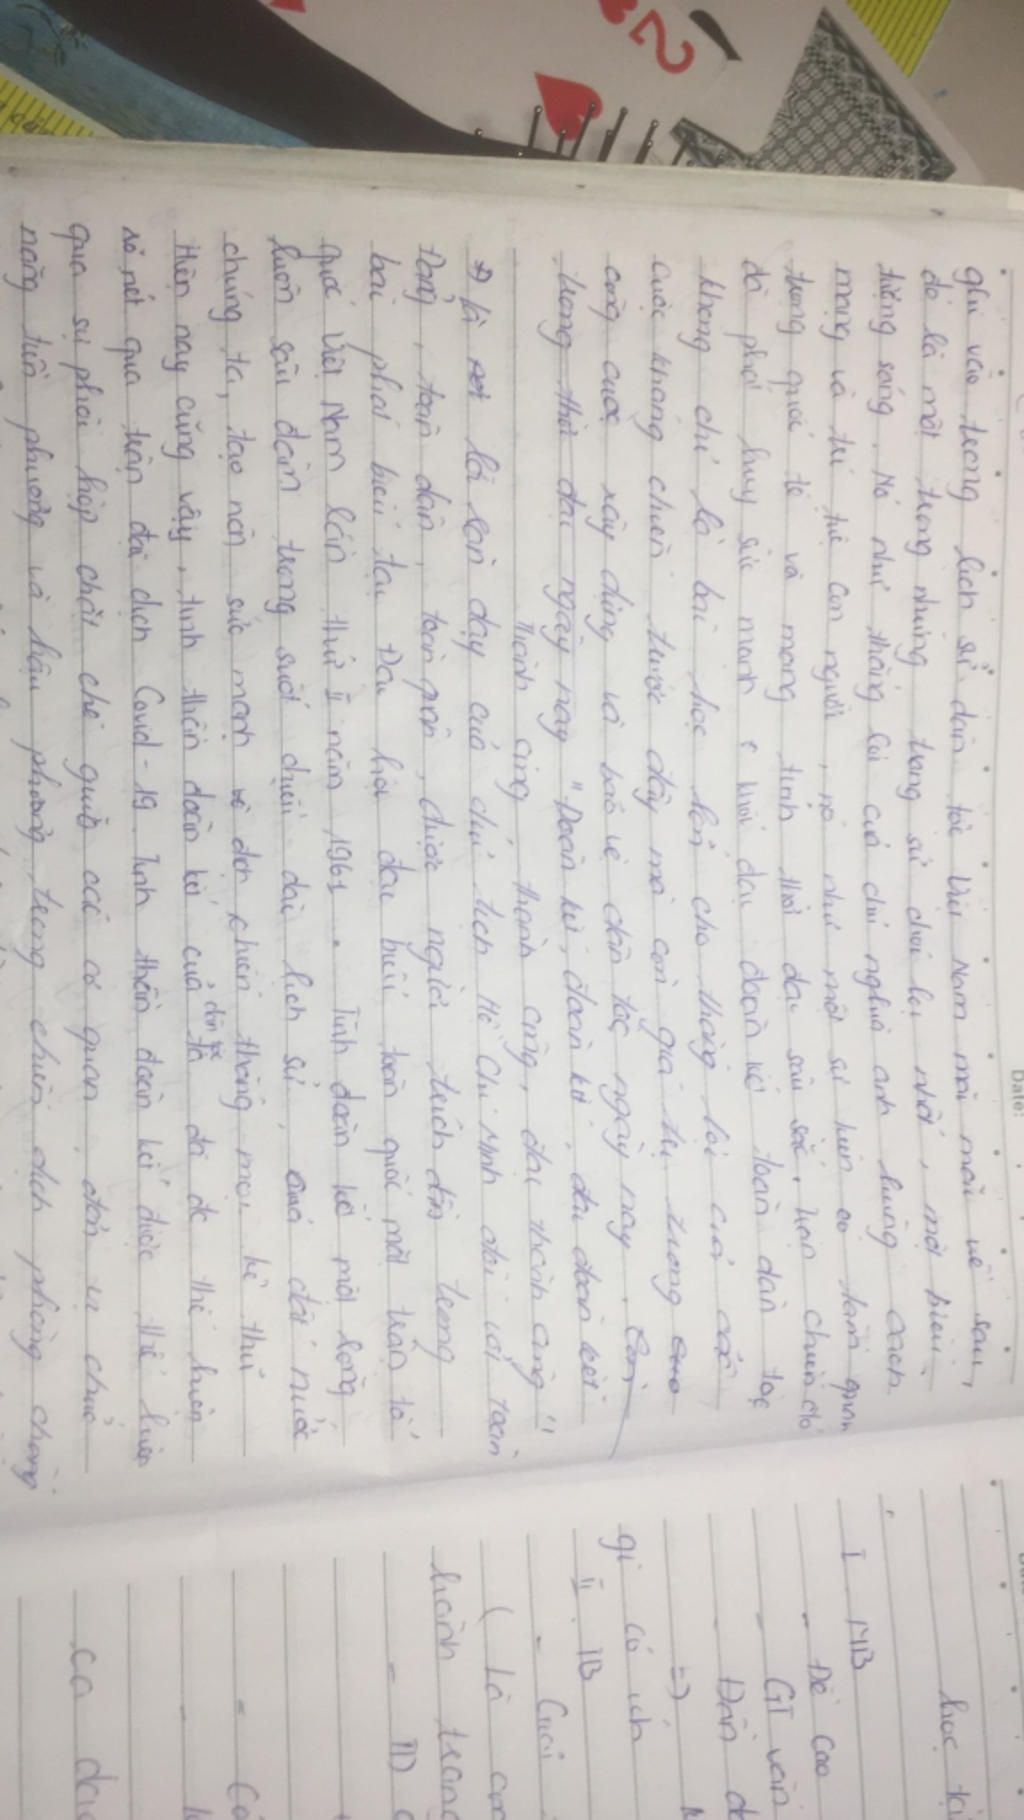 Date:
ghi vào trong lịch sử dân tộc Việt Nam mãi mãi về sau,
đó là một trong những trang sử chói lọi nhất, một biểu
tượng sáng. Nó như thắng lợi của chủ nghĩa anh hùng cách
mạng và trí tuệ con người, nó như một sự kiện có tầm quan
trọng quốc tế và mang tính thời đại sâu sắc, trận chiến đó
đã phát huy sức mạnh khối đại đoàn kết toàn dân tộc
không chỉ là bài học lớn cho thắng lợi của các
cuộc kháng chiến trước đây mà còn giá trị trong
công cuộc xây dựng và bảo vệ dân tộc ngày nay.
trong thời đại ngày nay "Đoàn kết, đoàn kết, đại đoàn kết
Thành công, thành công, đại thành công"
là lời căn dặn của chủ tịch Hồ Chí Minh đối với toàn
Đảng, toàn dân, toàn quân, được người trích dẫn trong
bài phát biểu tại Đại hội đại biểu toàn quốc mặt trận tổ
quốc Việt Nam lần thứ II năm 1961. Tinh đoàn kết một lòng
luôn sâu đậm trong suốt chiều dài lịch sử, của đất nước
chúng ta, tạo nên sức mạnh vô địch chiến thắng mọi kẻ thù
Hiện nay cũng vậy, tinh thần đoàn kết của dân tộc ta đã đc thể hiện
rõ nét qua trận đại dịch Covid-19. Tinh thần đoàn kết được thể hiện
qua sự phối hợp chặt chẽ giữa các cơ quan, đơn vị chức
năng tiền phương và hậu phương trong chiến dịch phòng chống
học
I MB
- Đề cao
- GT văn
- Dẫn
=)
gì có ích
II. TB
- Giải
( Là
hành trang
- TD
-
- Có
-
ca dao